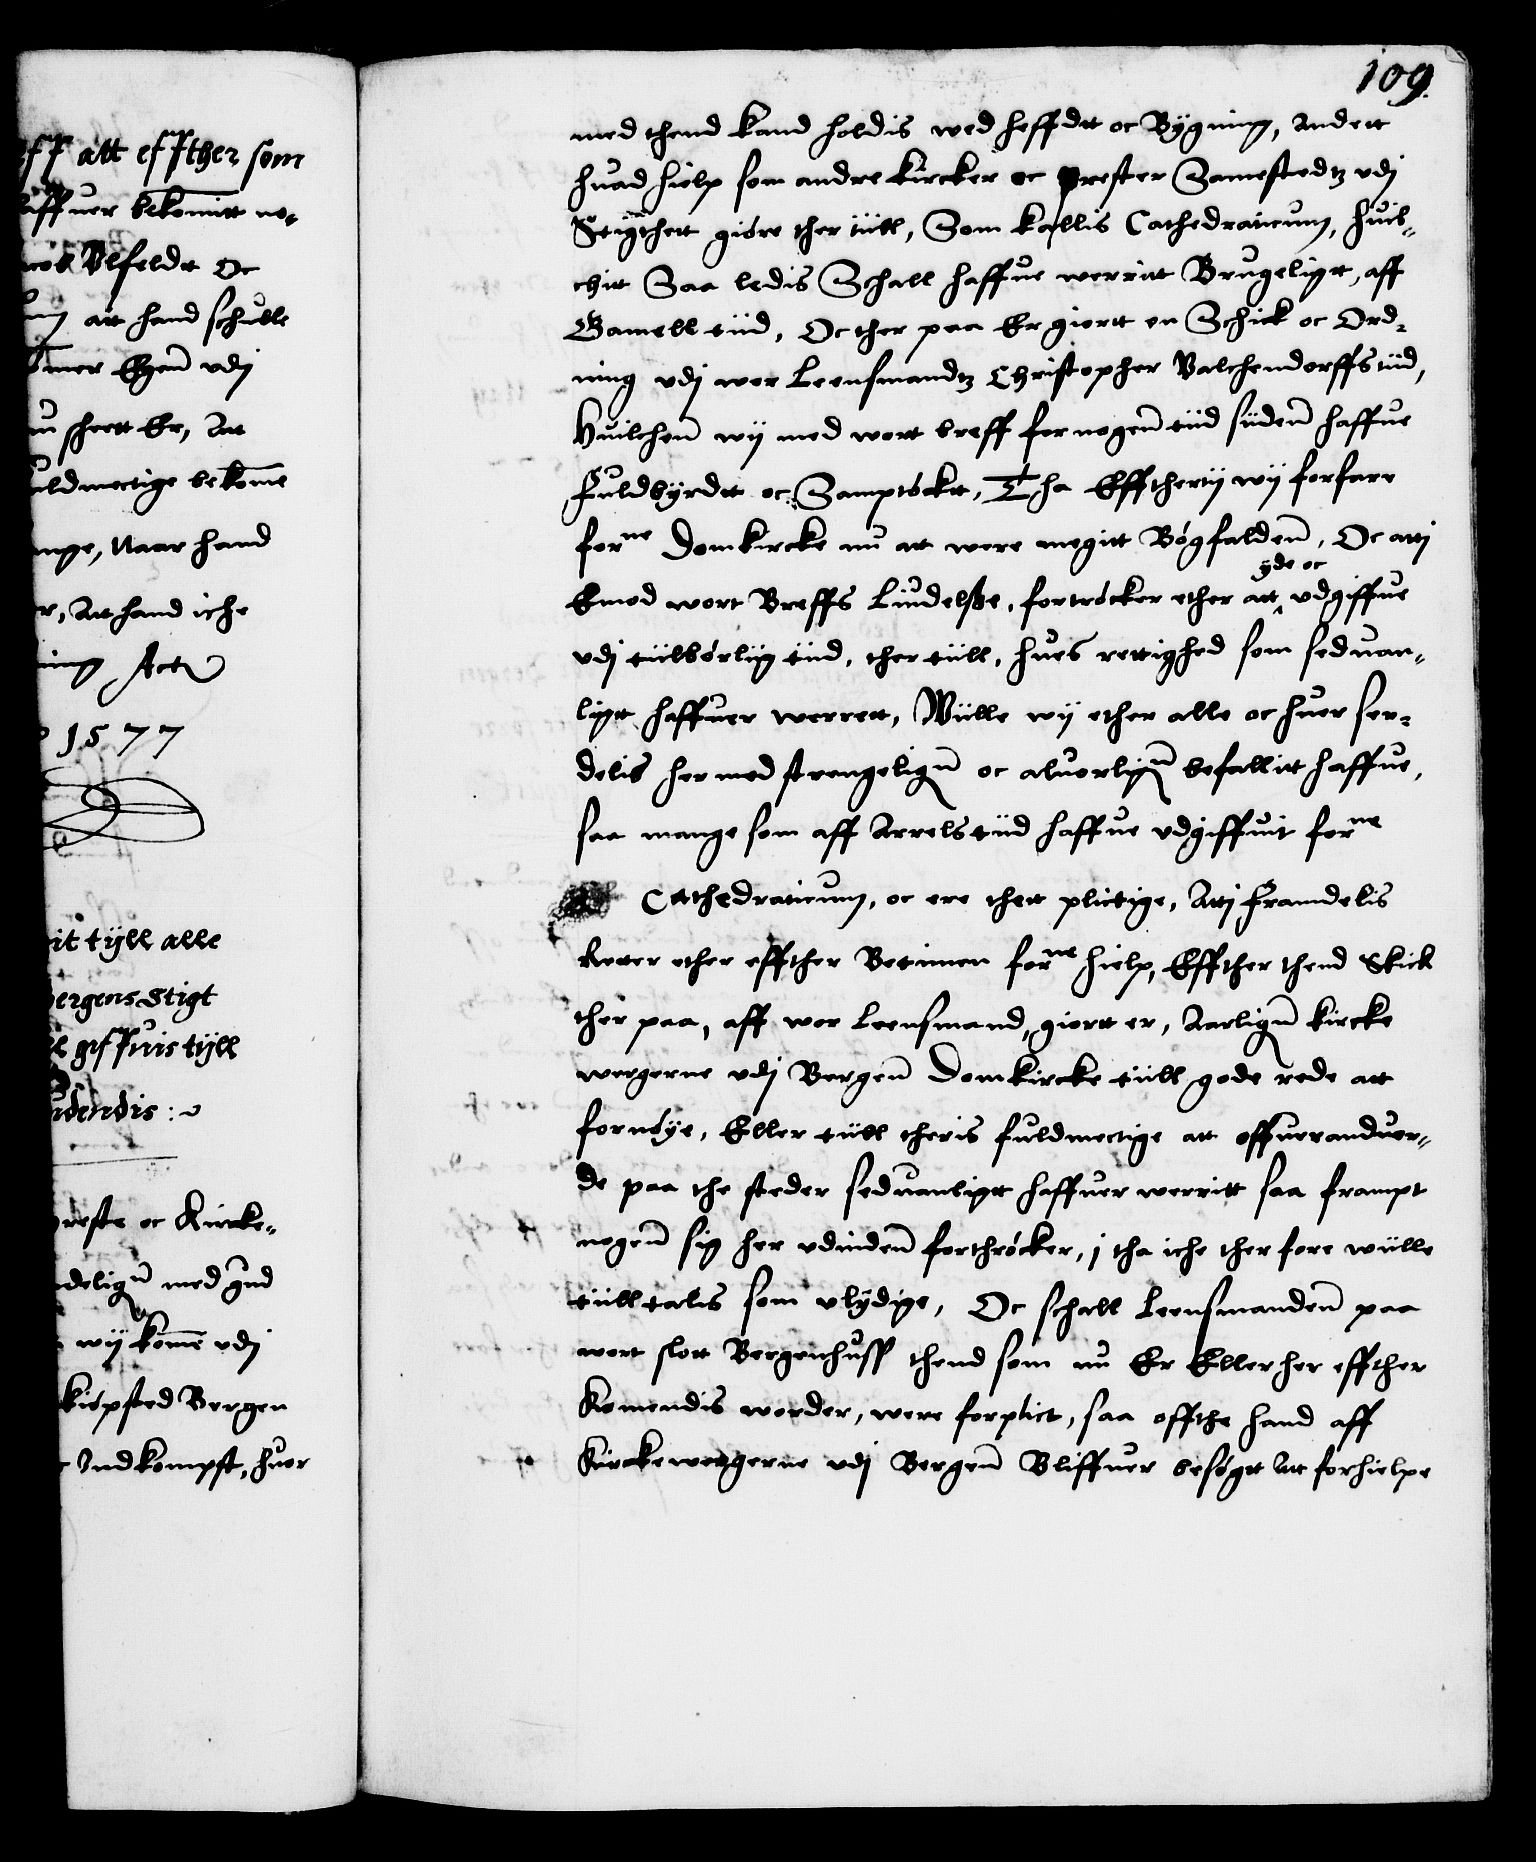 ff att effther som
affuer bekomitt no-
cob Vlfeldt Oc
att hand schulle
mer Egen vdj
skeett Er, Att
uldmectige bekome
Naar hand
Att hand iche
ing Actu
1577
it tyll alle
bergens Stigt
giffuis tyll
ndendis :~
preste oc Kircke-
deligen med gud
wij kome vdj
kiøpsted Bergen
Indkompst, huor
109.
med thend kand holdis wed heffdt oc Bygning, Andett
huad hielp som andre kircker oc prester Samestedtz vdj
Stigthett giøre ther tiill, Som kallis Cathedraticum, huil-
chitt Saa ledis Schall haffue werritt Brugeligtt, aff
Gamell tiid, Oc ther paa Er giortt en Schick oc Ord-
ning vdj wor Leensmandtz Christopher Valchendorffs tiid,
Huilchen wij med wort breff for nogen tiid siiden haffue
fuldbyrdtt oc Samptøckt, Tha Efftherthij wij forfare
forne Domkircke nu att were megitt Bøgfalden, Oc atti
Emod wort Breffs Liudelsze, fortrøcker ether att ^ vdgiffue
yde oc
vdj tiilbørliig tiid, ther tiill, hues rettighed som seduan-
ligtt haffuer werrett, Wiille wij ether alle oc huer ser-
delis hermed strengeligen oc aluorligen befallitt haffue,
saa mange som aff Arrels tiid haffue vdgiffuit forne
Cathedraticum, oc ere thett plictige, Atti framdelis
Retter ether effther Betimen forne hielp, Effther thend Skick
ther paa, aff wor Leensmand, giortt er, Aarligen kircke
wergerne vdj Bergen Domkircke tiill gode rede att
fornøye, Eller tiill theris fuldmectige att offueranduor-
de paa the steder seduanligtt haffuer werritt saa frampt
nogen sig her vdinden forthrøcker, j tha iche ther fore wiille
tiilltalis som vlydige, Oc schall Leensmanden paa
wort slott Bergenhuss thend som nu Er Eller her effther
Komendis worder, were forplict, saa offthe hand aff
Kirckewergerne vdj Bergen Bliffuer besøgtt Att forhielpe